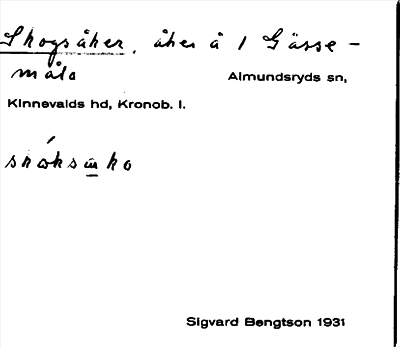 Skogsåker, åker å 1 Gässe-
måla Almundsryds sn,
Kinnevalds hd, Kronob. l.
Sigvard Bengtson 1931